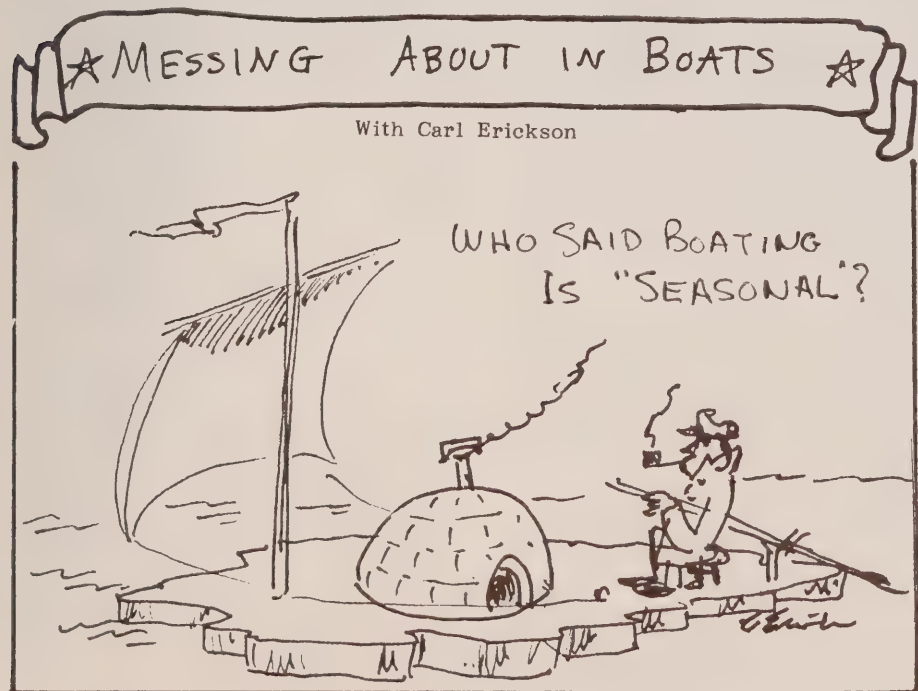 ☆ MESSING ABOUT IN BOATS ☆
With Carl Erickson
WHO SAID BOATING
IS "SEASONAL"?